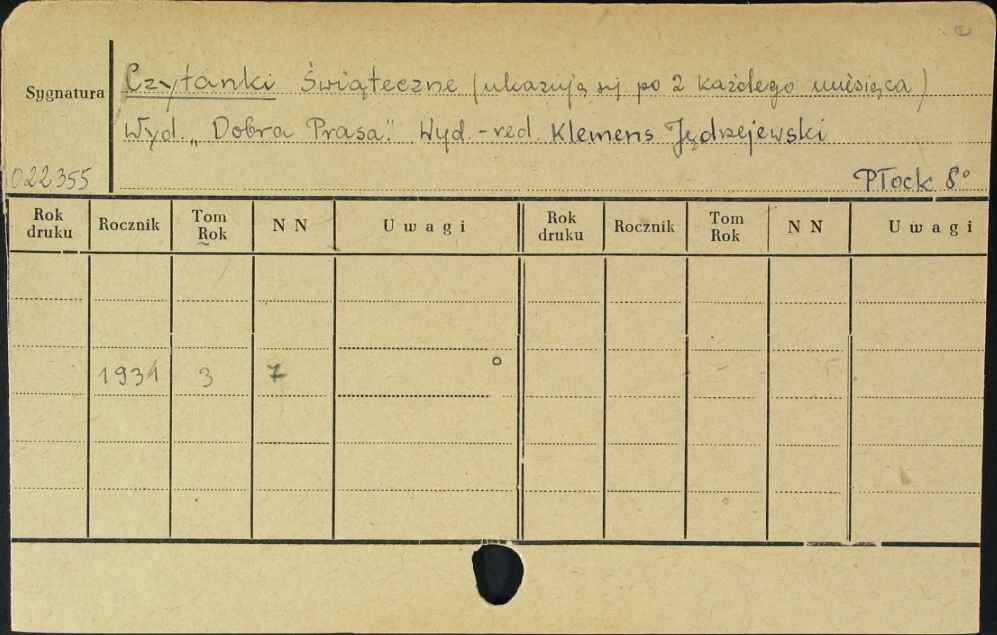 Sygnatura
Czytanki Świąteczne (ukazują się po 2 każdego miesiąca)
Wyd. „Dobra Prasa". Wyd.-red. Klemens Jędrzejewski
022355
Płock 8°
Rok druku Rocznik Tom Rok N N Uwagi Rok druku Rocznik Tom Rok N N Uwagi
1931 3 7